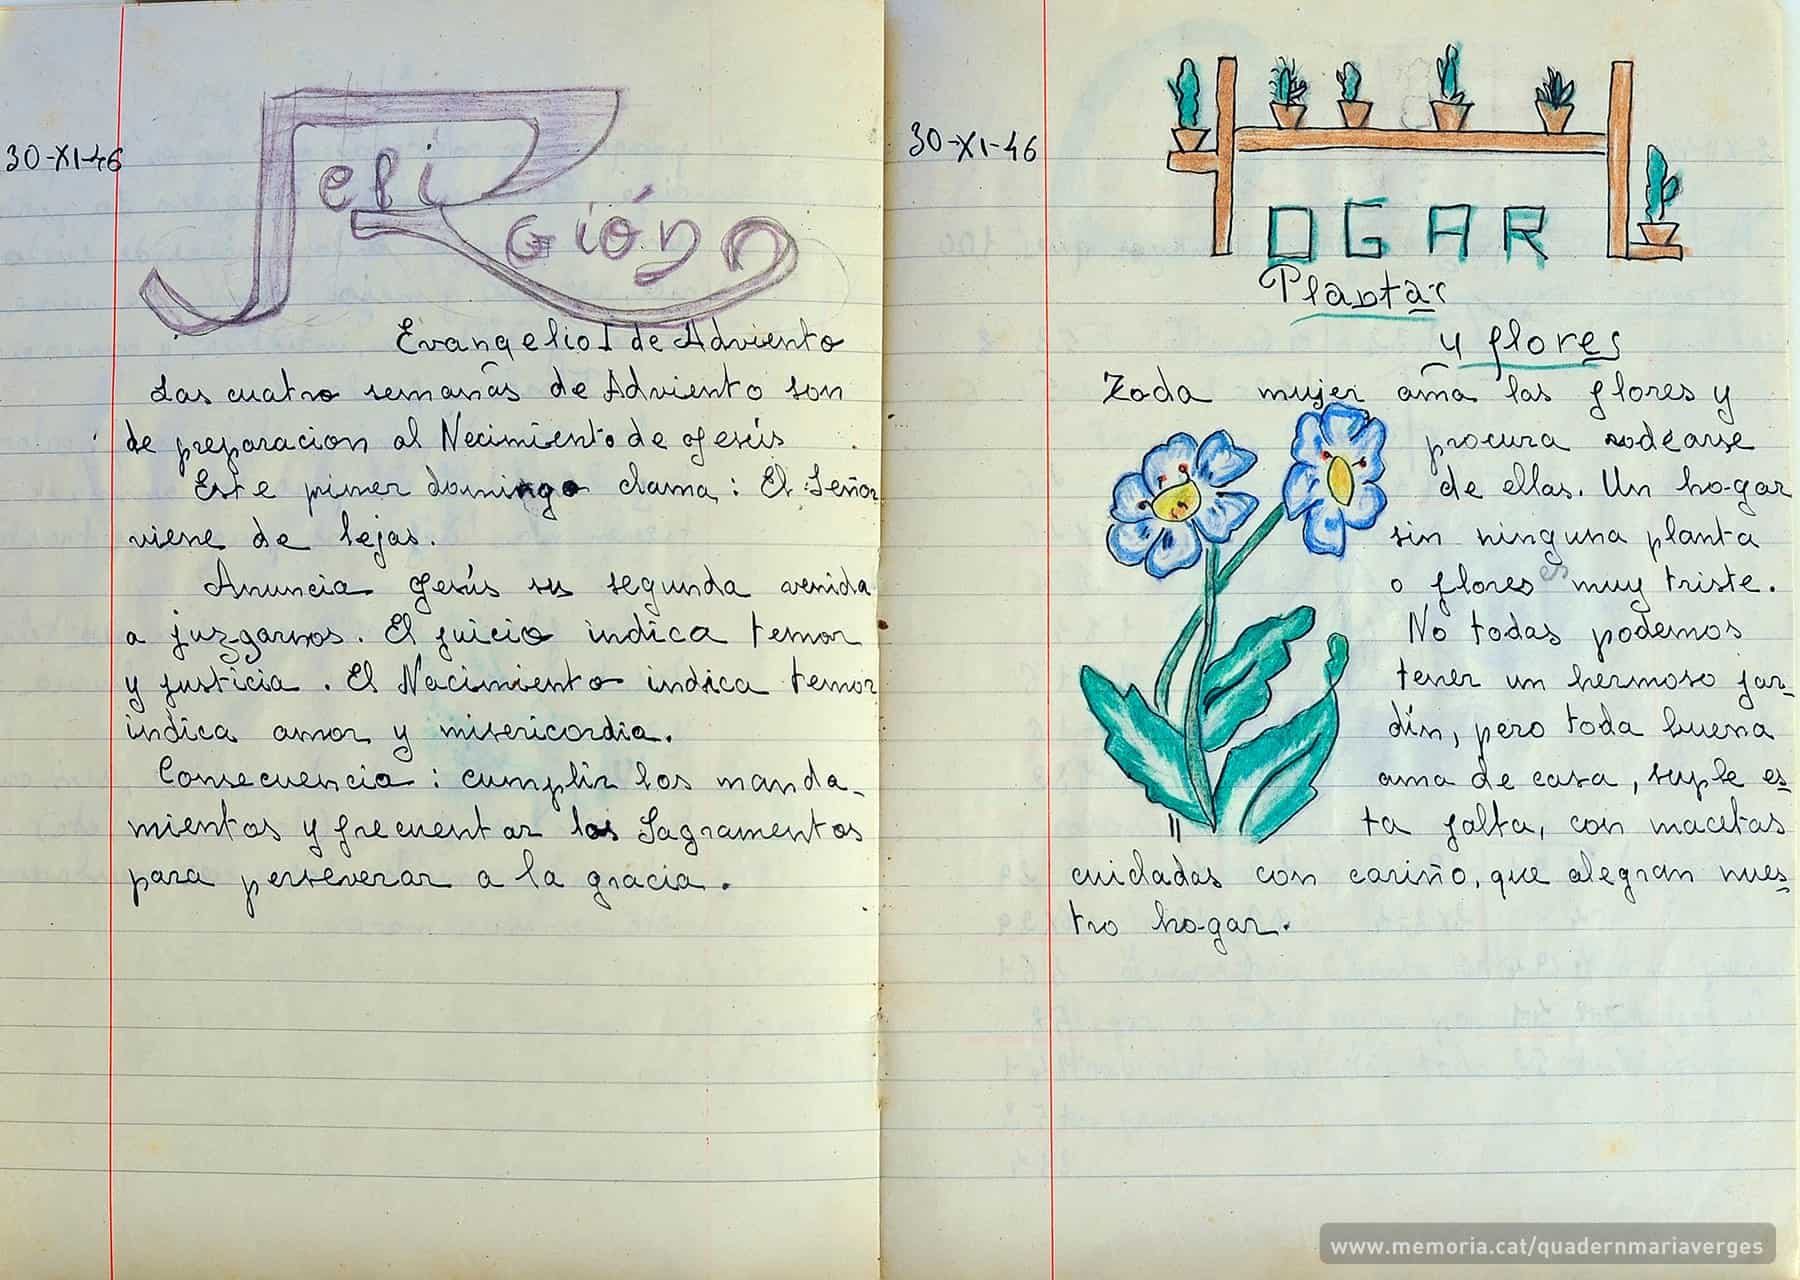 30-XI-46
Religión
Evangelio I de Adviento
Las cuatro semanas de Adviento son
de preparacion al Necimiento de Jesús
Este primer domingo clama: El Señor
viene de lejas.
Anuncia Jesús su segunda venida
a juzgarnos. El juicio indica temor
y justicia. El Nacimiento indica temor
indica amor y misericordia.
Consecuencia: cumplir los manda-
mientos y frecuentar los Sagramentos
para perseverar a la gracia.
30-XI-46
HOGAR
Plantas
y flores
Toda mujer ama las flores y
procura rodearse
de ellas. Un hogar
sin ninguna planta
o flores es muy triste.
No todas podemos
tener un hermoso jar-
dín, pero toda buena
ama de casa, suple es-
ta falta, con macetas
cuidadas con cariño, que alegran nues-
tro hogar.
www.memoria.cat/quadernmariaverges